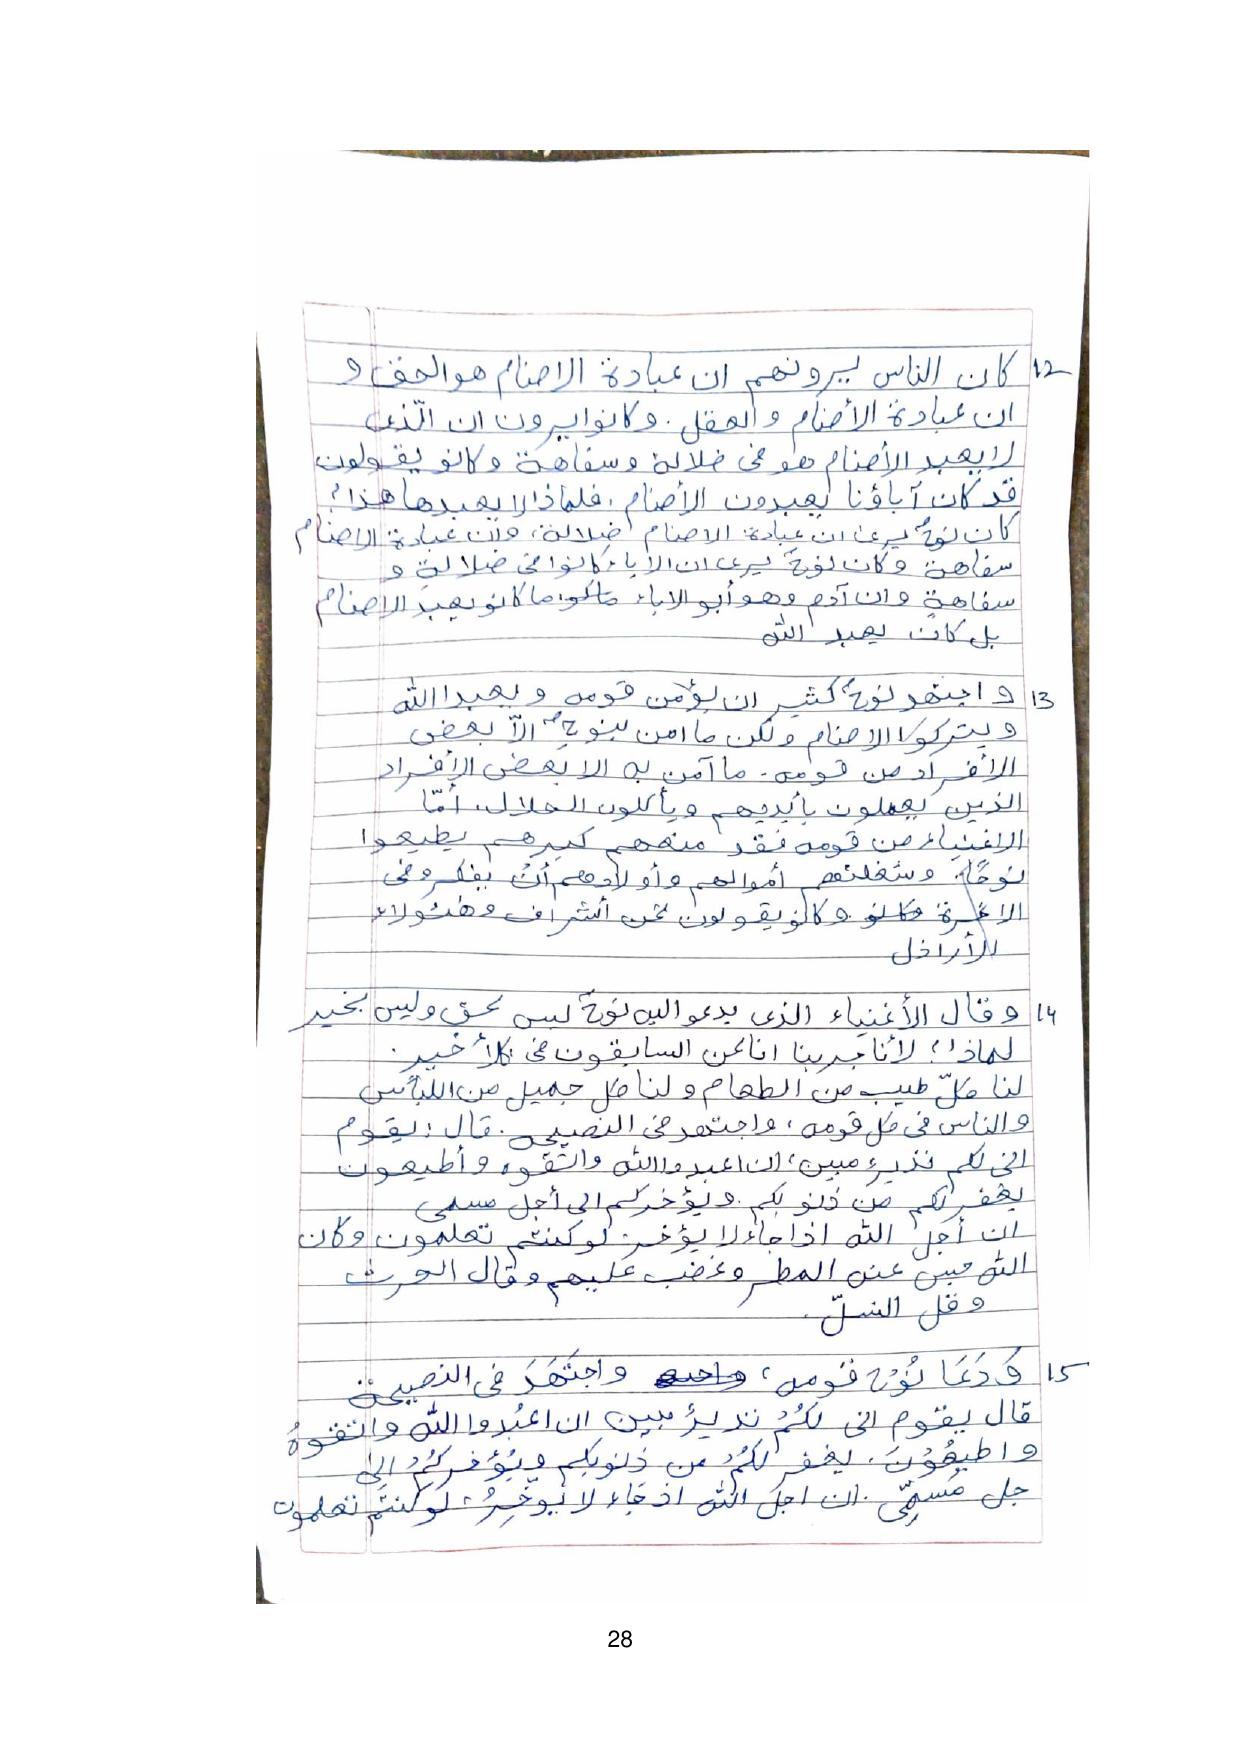 12 كان الناس يرونهم ان عبادة الاصنام هو الحق و
ان عبادة الأصنام والعقل. وكانوا يرون ان الّذى
لا يعبد الأصنام هو فى ضلالة وسفاهة وكانو يقولون
قد كان آباؤنا يعبدون الأصنام، فلماذا لا يعبدها هذا؟
كان نوحٌ يرى ان عبادة الاصنام ضلالة، وان عبادة الاصنام
سفاهة وكان نوحٌ يرى ان الاباء كانوا فى ضلالةٍ و
سفاهةٍ وان آدم وهو أبو الاباء ما كانو يعبد الاصنام
بل كان يعبد الله
13 و اجتهد نوحٌ كثير ان يؤمن قومه ويعبدا الله
ويتركوا الاصنام ولكن ما امن بنوحٍ الاّ بعض
الأفراد من قومه. ما آمن به الا بعض الأفراد
الذين يعملون بأيديهم ويأكلون الحلال، أمّا
الاغنياء من قومه فقد منعهم كبرهم يطيعوا
نوحًا. وشغلتهم أموالهم وأولادهم أنْ يفكرو فى
الاخرة وكانو يقولون نحن أشراف وهئولاء
الأراذل
14 وقال الأغنياء الذى يدعو اليه نوحٌ ليس بحق وليس بخير
لماذا؟ لأنا جربنا انا نحن السابقون فى كلأ خير.
لنا كلّ طيب من الطعام ولنا كل جميل من اللباس
والناس فى كل قومه، واجتهد فى النصيحه. قال: يقوم
انى لكم نذيرء مبين، ان اعبدوا الله واتقوه وأطيعون
يغفر لكم من ذنوبكم. ويؤخركم الى أجل مسمى
ان أجل الله اذا جاء لا يؤخر. لو كنتم تعلمون وكان
الله حبس عنه المطر وغضب عليهم وقال الحرث
وقل النسلّ.
15 وَدَعَا نُوْح قومه، واجتَهَدَ فى النصيحة
قال يقوم انى لكُمْ نذيرٌ مبين ان اعبُدوا الله واتقوهُ
واطيعُوْنَ. يغفر لكُمْ من ذنوبكم ويُؤخركُمْ الى
جل مُسمّى. ان اجل الله اذ جاء لا يُوخرُ، لو كنتم تعلمون
28